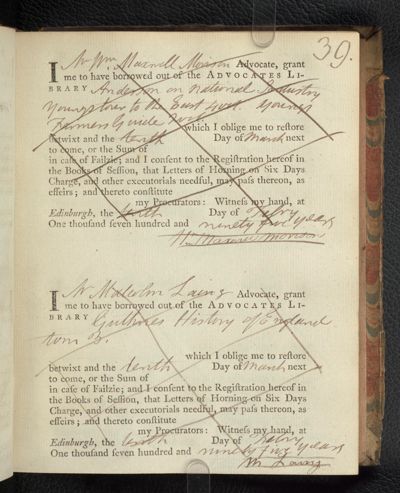 39.
I Mr Wm Maxwell Morison Advocate, grant
me to have borrowed out of the ADVOCATES LI-
BRARY Anderson on National Industry
Youngs tour to the East Gove. Youngs
Farmers Guide
which I oblige me to reſtore
betwixt and the tenth Day of March next
to come, or the Sum of
in caſe of Failzie; and I conſent to the Regiſtration hereof in
the Books of Seſſion, that Letters of Horning on Six Days
Charge, and other executorials needful, may paſs thereon, as
effeirs; and thereto conſtitute
my Procurators: Witneſs my hand, at
Edinburgh, the tenth Day of Febry
One thouſand ſeven hundred and ninety five years
Wm Maxwell Morison
I Mr Malcolm Laing Advocate, grant
me to have borrowed out of the ADVOCATES LI-
BRARY Guthries History of England
tom 3.
which I oblige me to reſtore
betwixt and the tenth Day of March next
to come, or the Sum of
in caſe of Failzie; and I conſent to the Regiſtration hereof in
the Books of Seſſion, that Letters of Horning on Six Days
Charge, and other executorials needful, may paſs thereon, as
effeirs; and thereto conſtitute
my Procurators: Witneſs my hand, at
Edinburgh, the tenth Day of Febry
One thouſand ſeven hundred and ninety five years
M. Laing